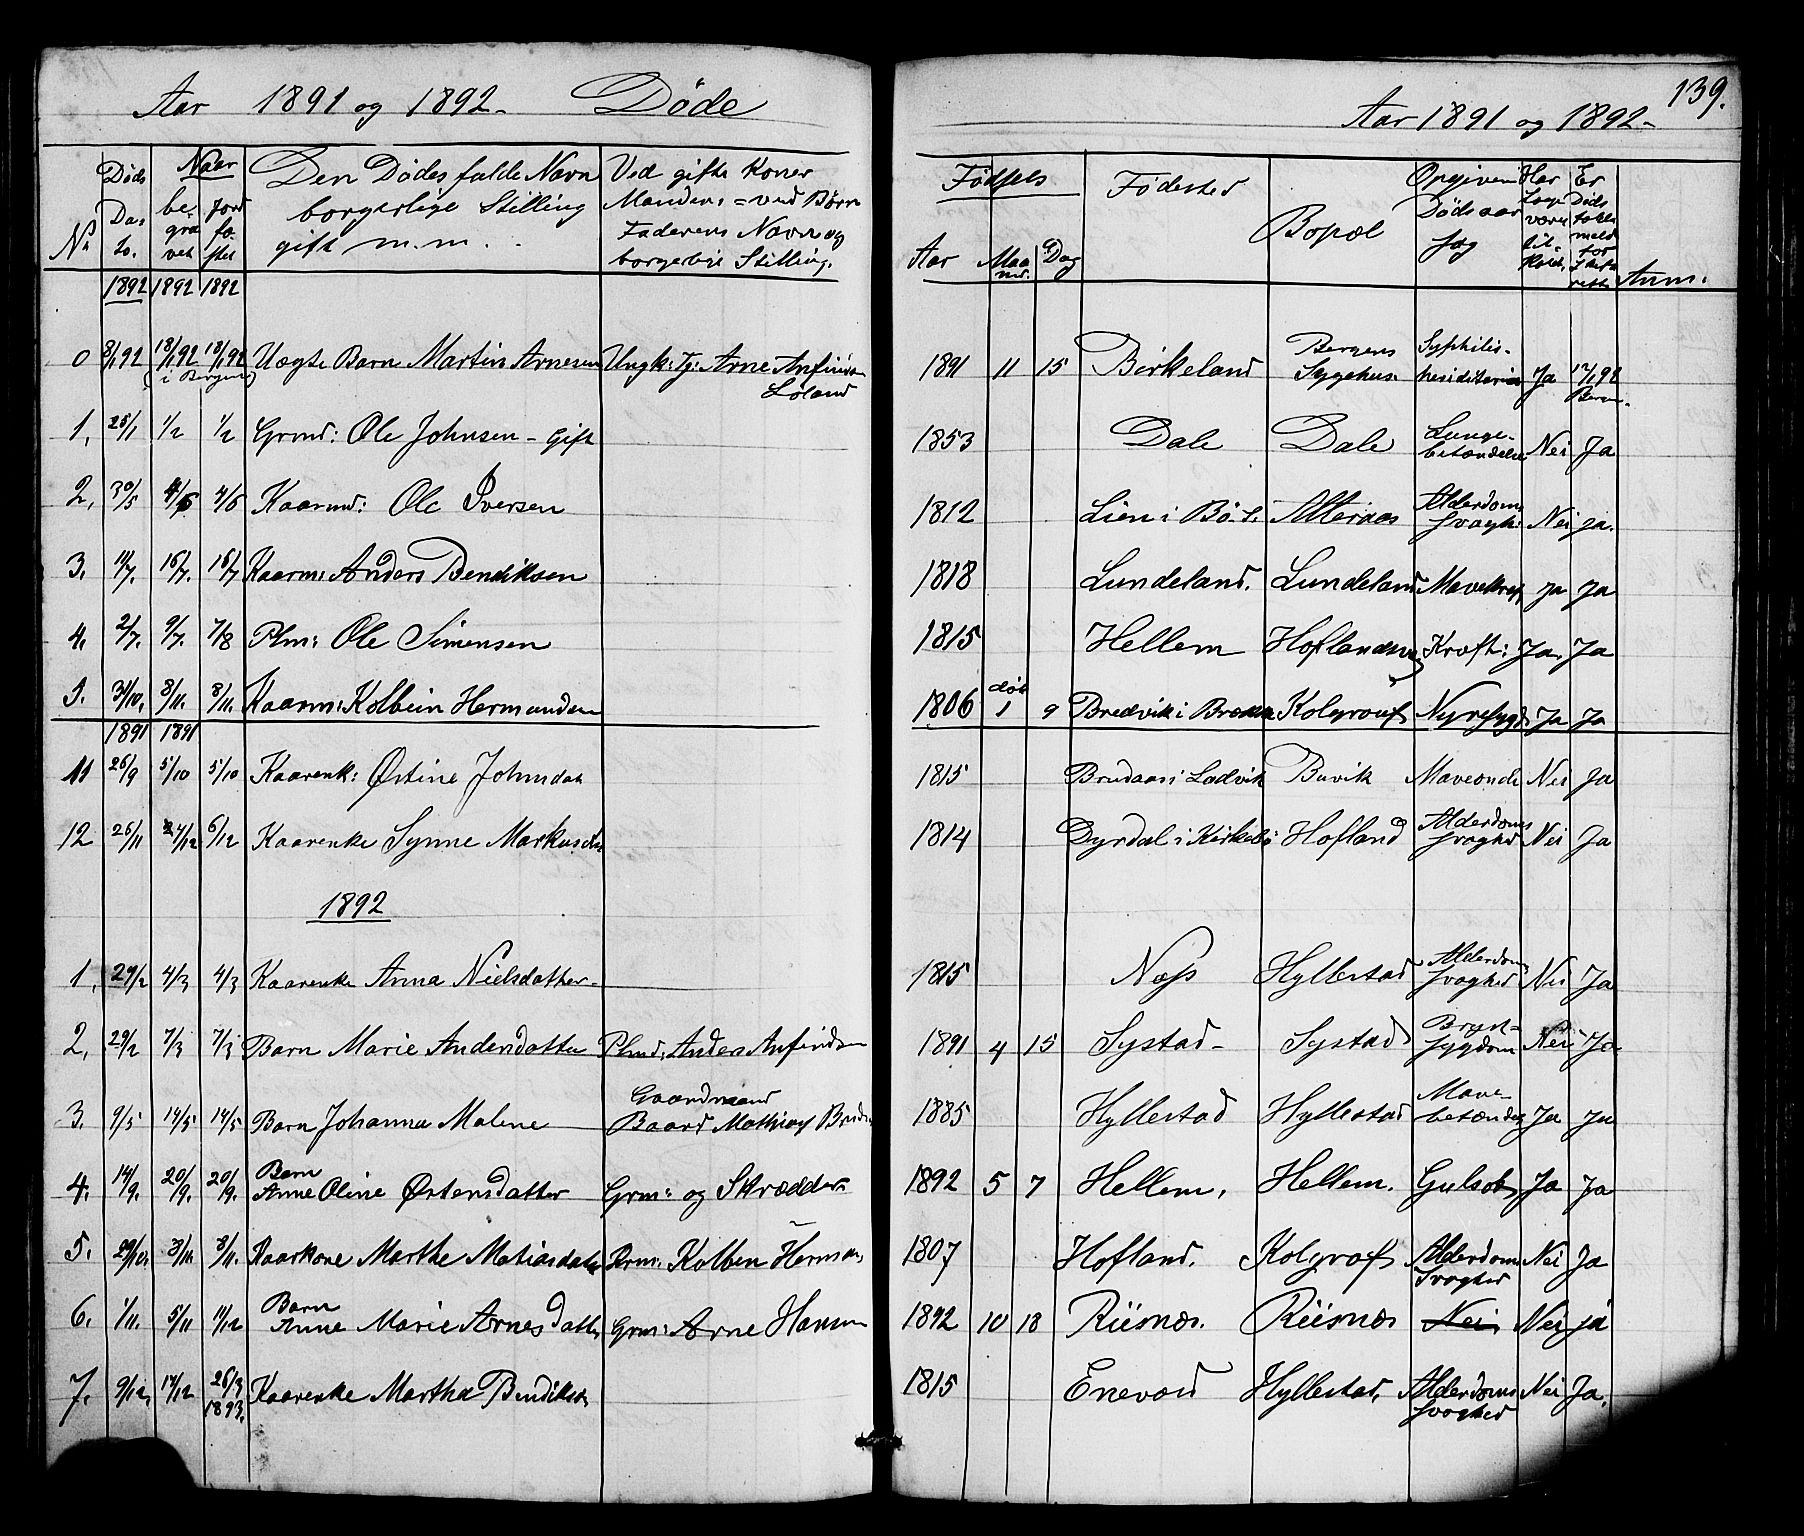 Aar 1891 og 1892 - Døde
Aar 1891 og 1892 -
139.
No
Døds Dato.
Naar
be-gra vet
Jord fæ stet
Den Dødes fulde Navn
borgerlige Stilling
gift m.m.
Ved gifte Koner
Mandens = ved Børn
Faderens Navn og
borgerlige Stilling.
Fødsels
Aar Maa ned. Dag
Fødested
Bopæl
Opgiven
Dødsaar
sag
Har Læge været til-
Er Døds meldt for Skifte retten
Anm.
1892 1892 1892
0 8/1 92 18/1 92 18/1 92 Uægte Barn Martin Arnesen Ungk: Arne Anfinds Løland 1891 11 15 Birkeland Bergens Sygehus. Syphilis- Ja 12/1 92
(i Bergen)
1, 25/1 1/2 1/2 Grmd: Ole Johnsen - Gift 1853 Dale Dale Lunge-betændelse Nei Ja
2, 30/5 4/6 4/6 Kaarmd: Ole Iversen 1812 Lien i Bø S. Alteraas Alderdoms svagh: Nei ja.
3. 11/7. 16/7. 16/7 Kaarm: Anders Bendiksen 1818 Lundeland. Lundeland Ja Ja
4. 2/7. 9/7. 7/8 Plm: Ole Simensen 1815 Hellem Kræft: Ja. Ja
5. 31/10. 8/11. 8/11. Kaarm: Kolbein Hermundsen 1806 døb 1 9 Bredvik i Brekke Kolgrof Nyresygd Ja Ja
1891 1891
11 26/9 5/10 5/10 Kaarenk: Østine Johnsdat 1815 Brudaas i Ladvik Buvik Maveonde Nei Ja
12 26/11 4/12 6/12 Kaarenke Synne Markusdtr 1814 Dyrdal i Kirkebø Hofland Alderdoms svaghed Nei Ja
1892
1, 24/2 4/3 4/3 Kaarenke Anna Nielsdatter - 1815 Næss Hyllestad Alderdoms svaghed Nei Ja
2, 29/2 7/3 7/3 Barn Marie Andersdatter Plmd: Anders Anfinds 1891 4 15 Systad - Systad Bryst-sygdom Nei Ja
3. 9/5 14/5 14/5 Barn Johanna Malene Gaardmand Baard Mathias 1885 Hyllestad Hyllestad Mave-betændels Ja Ja
4. 14/9. 20/9. 20/9. Barn Anne Oline Østensdatter Grm: og Skrædder 1892 5 7 Hellem, Hellem. Gulsot Ja Ja
5. 29/10. 8/11. 8/11. Kaarkone Marthe Matiasdatr Krm: Kolben Herman, 1807 Hofland. Kolgrof Alderdoms svaghed Nei Ja
6. 1/11. 5/11 11/12 Barn Anne Marie Arnesdatter Grm: Arne Hansen 1892 10 18 Riisnæs. Riisnæs Nei Nei ja
7. 9/12, 14/12 26/3 1893. Kaarenke Martha Bendiksd 1815 Enevold Hyllestad, Alderdoms svaghed Nei Ja.